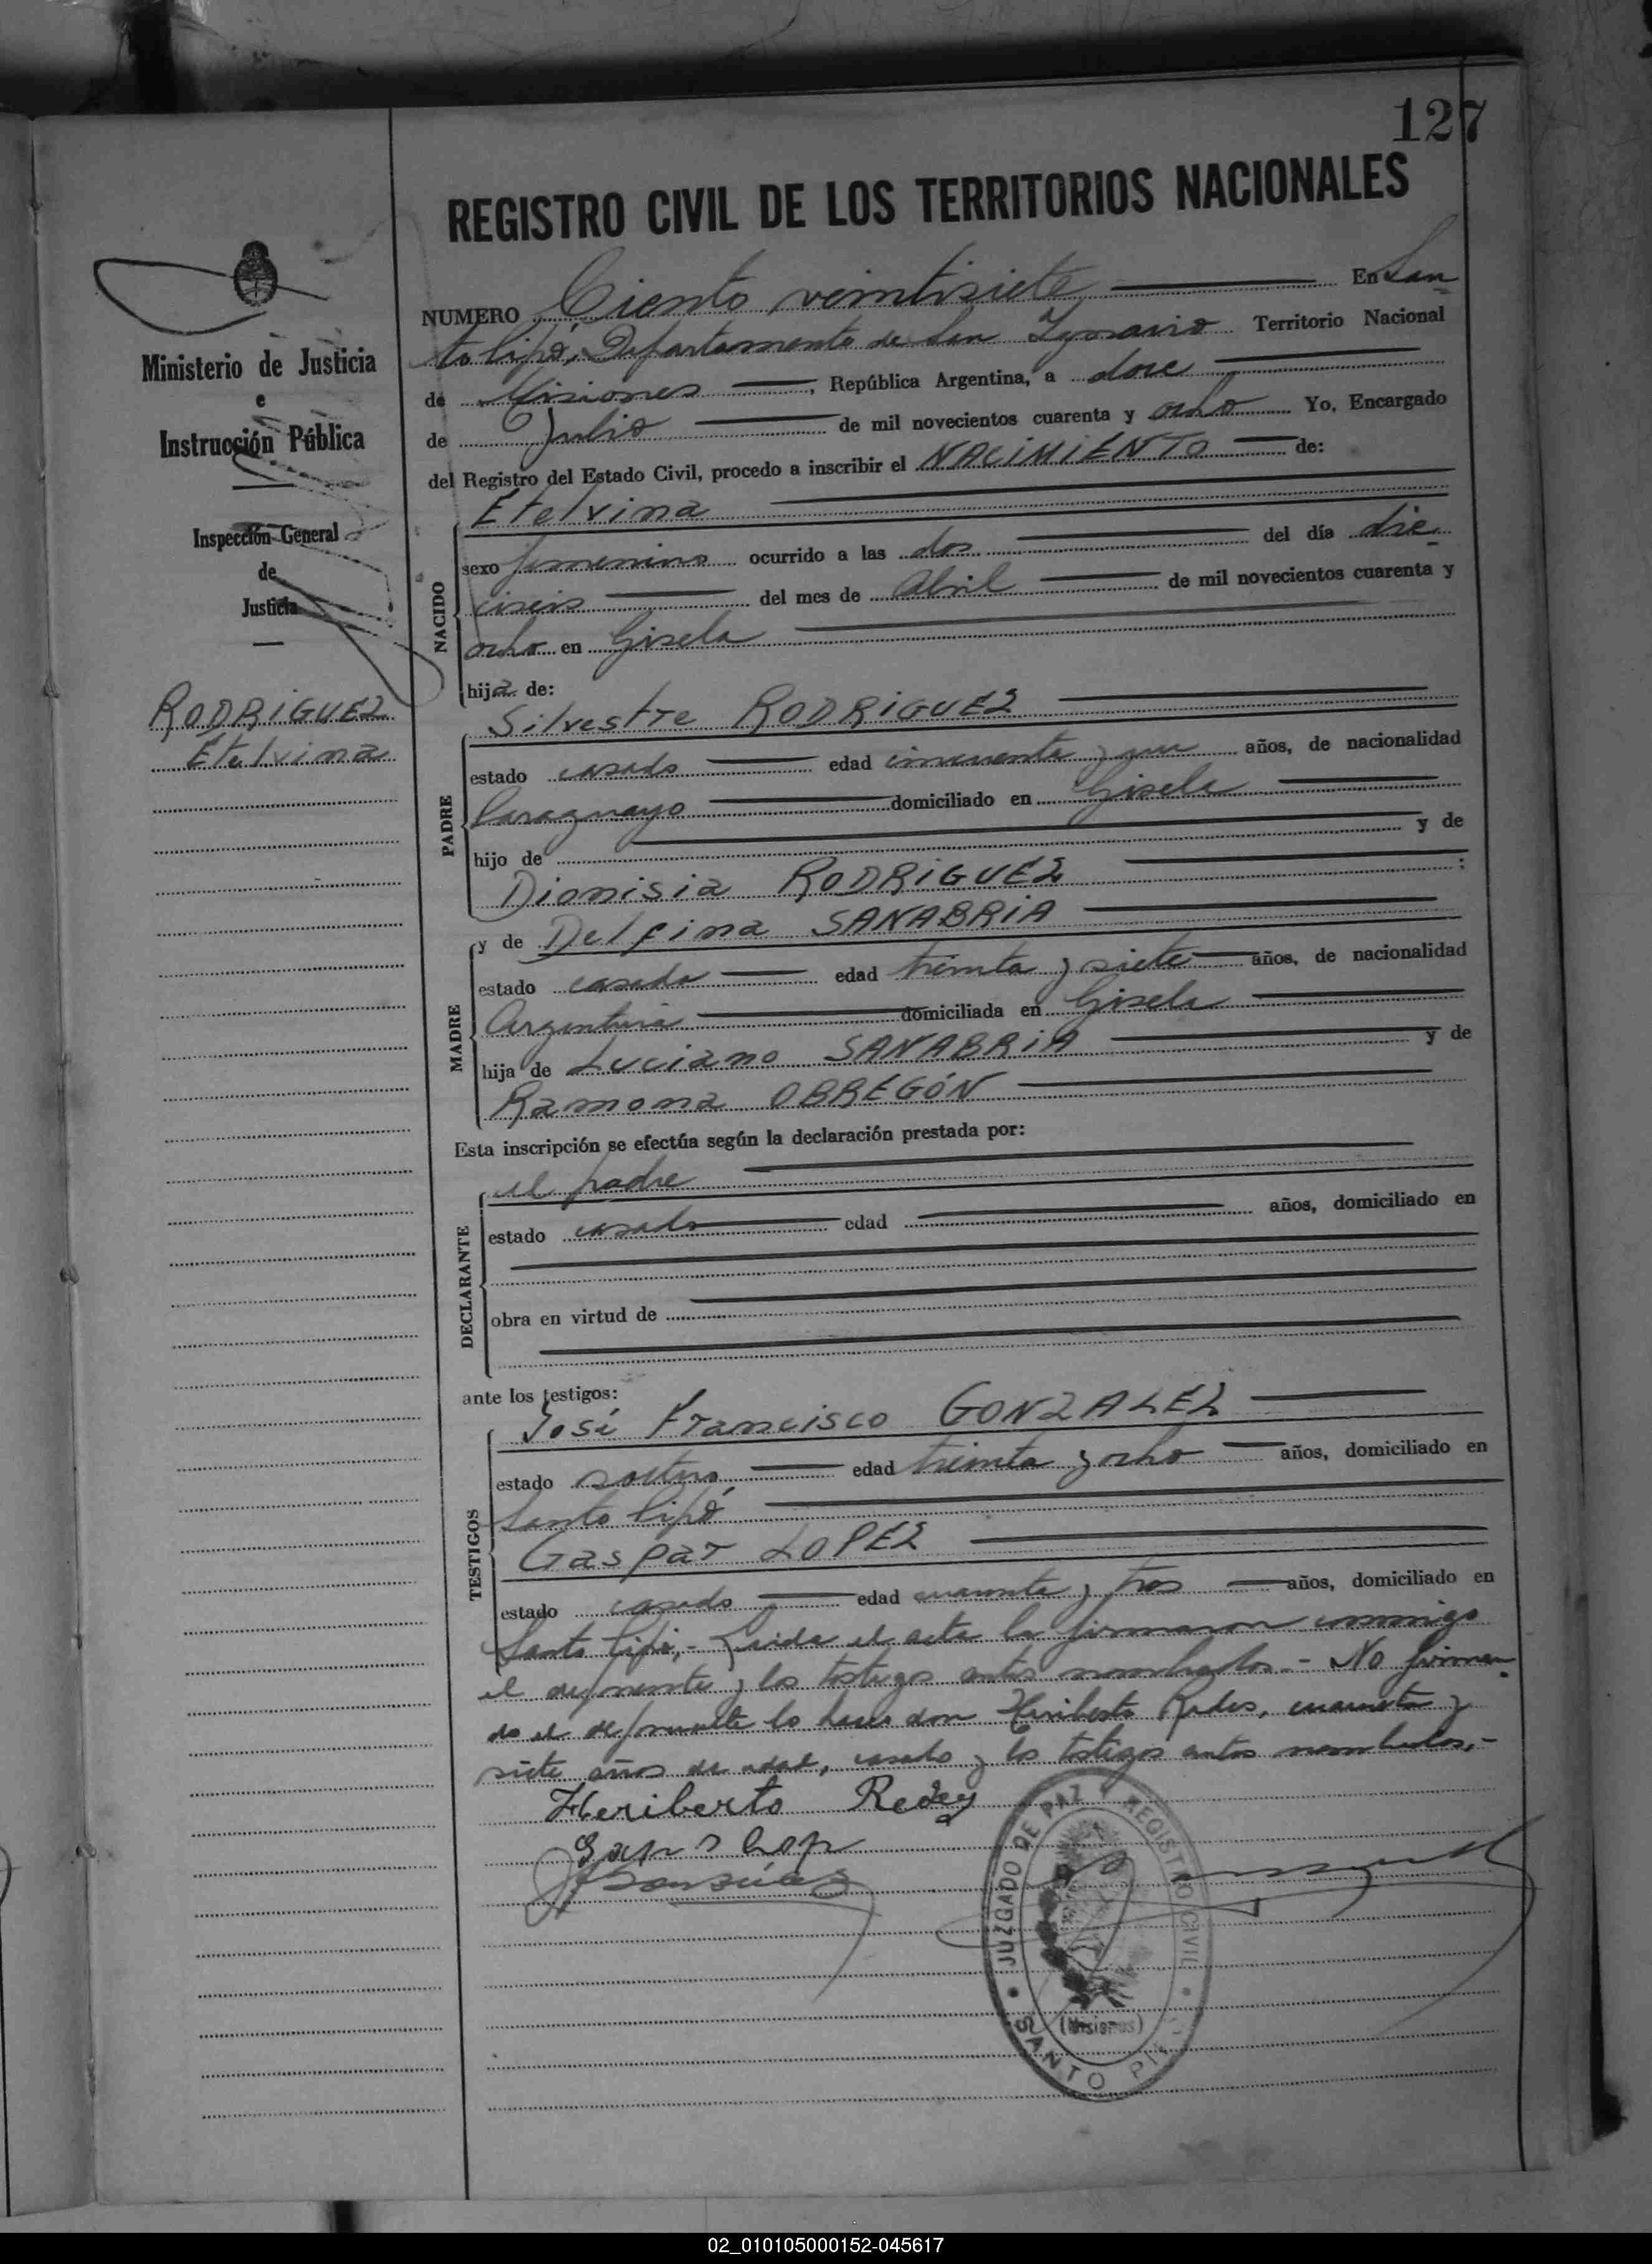 127
REGISTRO CIVIL DE LOS TERRITORIOS NACIONALES
NUMERO Ciento veintisiete En San
to Pipó, Departamento de San Ignacio Territorio Nacional
de Misiones, República Argentina, a doce
de Julio de mil novecientos cuarenta y ocho Yo, Encargado
del Registro del Estado Civil, procedo a inscribir el NACIMIENTO de:
Ministerio de Justicia
e
Instrucción Pública
Inspección General
de
Justicia
RODRIGUEZ
Etelvina
NACIDO
Etelvina
sexo femenino ocurrido a las dos del día die
ciseis del mes de Abril de mil novecientos cuarenta y
ocho en Gisela
hija de:
PADRE
Silvestre RODRIGUEZ
estado casado edad cincuenta y un años, de nacionalidad
Paraguayo domiciliado en Gisela
hijo de y de
Dionisia RODRIGUEZ
MADRE
y de Delfina SANABRIA
estado casada edad treinta y siete años, de nacionalidad
Argentina domiciliada en Gisela
hija de Luciano SANABRIA y de
Ramona OBREGÓN
Esta inscripción se efectúa según la declaración prestada por:
DECLARANTE
el padre
estado casado edad años, domiciliado en
obra en virtud de
ante los testigos:
TESTIGOS
José Francisco GONZALEZ
estado soltero edad treinta y ocho años, domiciliado en
Santo Pipó
Gaspar LOPEZ
estado casado edad cuarenta y tres años, domiciliado en
Santo Pipó,- Leida el acta la firmaron conmigo
el deponente y los testigos antes nombrados.- No firman
do el deponente lo hace don Heriberto Redes, cuarenta y
siete años de edad, casado y los testigos antes nombrados.-
Heriberto Redey
González
JUZGADO DE PAZ Y REGISTRO CIVIL
(Misiones)
SANTO PIPÓ
02_010105000152-045617